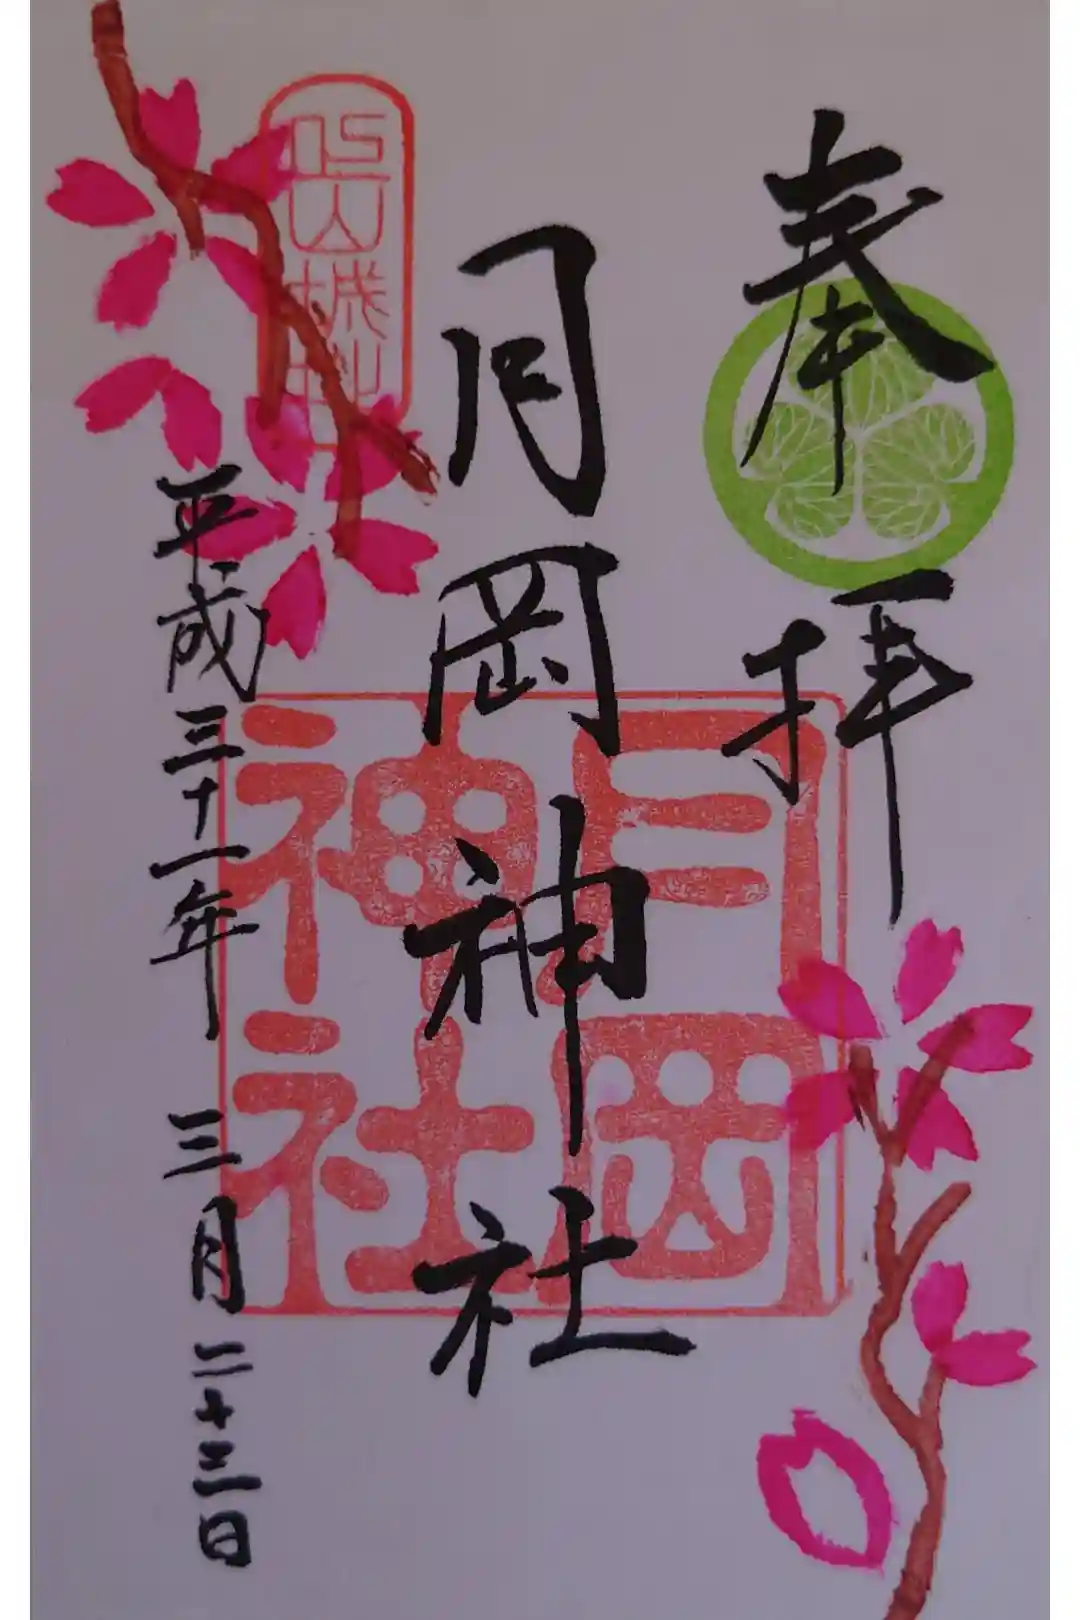 奉拝
月岡神社
平成三十一年 三月 二十三日
月岡
神社